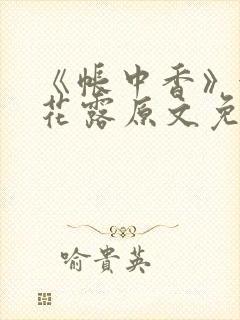 《帳中香》
花露原文免
喻貴英